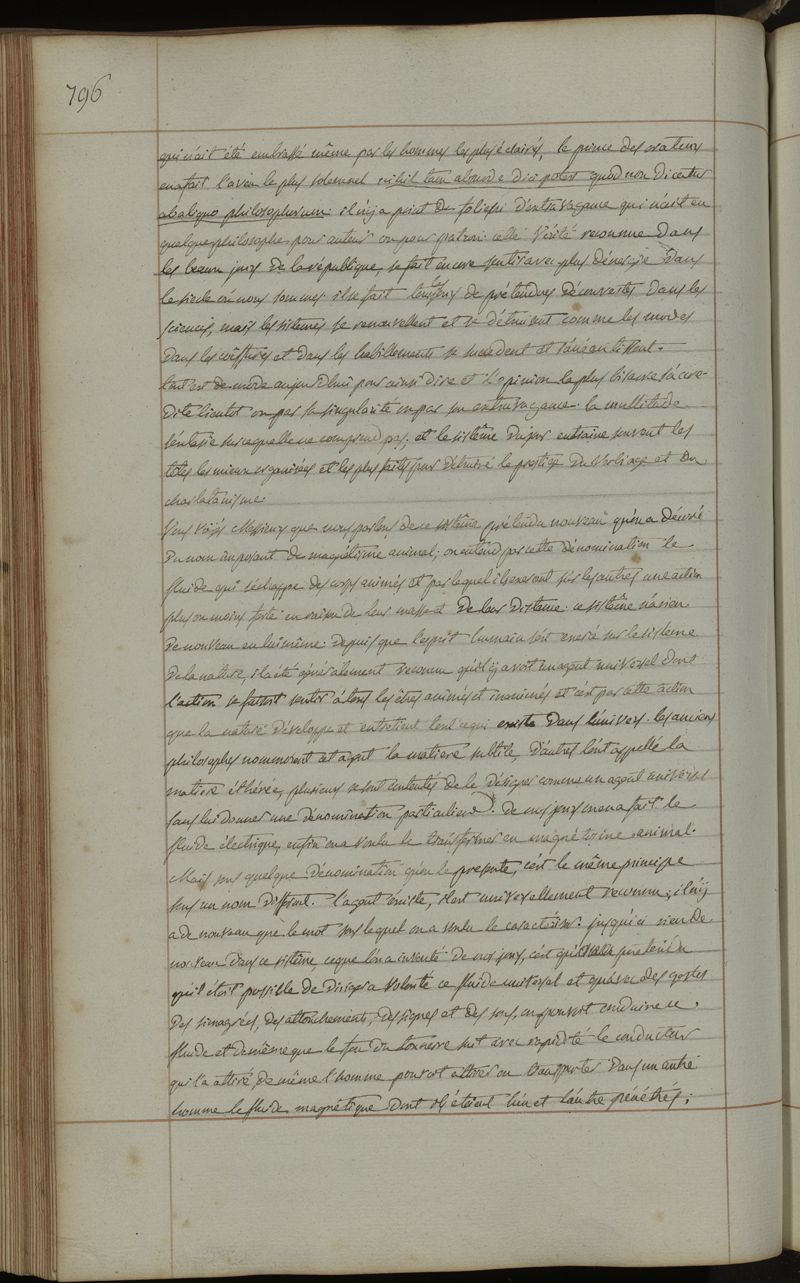 796
qui n'ait été embrassé même par les hommes les plus éclairés, le prince des orateurs
en a fait l'aveu le plus solemnel nihil tam absurde dici potest quod non dicatur
ab aliquo philosophorum il n'y a point de folie ni d'extravagance qui n'ait eu
quelque philosophe pour auteur ou pour patron. cette vérité reconnue dans
les beaux jours de la république, se fait encore sentir avec plus d'énergie dans
le siecle où nous sommes. il se fait toujours de prétendues découvertes dans les
sciences, mais les sistemes se renouvellent et se détruisent comme les modes
dans les coëffures et dans les habillements se succedent et s'anéantissent.
tout est de mode aujourd'hui pour ainsi dire et l'opinion la plus bisarre s'accré-
dite bientot ou par sa singularité ou par son extravagance. la multitude
s'entete sur ce qu'elle ne comprend pas, et le sistême du jour entraine souvent les
têtes les mieux organisées et les plus faites pour détruire le prestige du verbiage et du
charlatanisme.
Vous voiés Messieurs que nous parlons de ce sistême prétendu nouveau qu'on a décoré
du nom imposant de magnétisme animal; on entend par cette dénomination le
fluide qui s'échappe des corps animés et par lequel ils exercent sur les autres une action
plus ou moins forte en raison de leur masse et de leur distance. ce sistême n'a rien
de nouveau en lui même. depuis que l'esprit humain s'est exercé sur le sisteme
de la nature, il a été généralement reconnu qu'il y avoit un agent universel dont
l'action se faisoit sentir à tous les êtres animés et inanimés et c'est par cette action
que la nature développe et entretient tout ce qui existe dans l'univers. les anciens
philosophes nommerent cet agent la matiere subtile, d'autres l'ont appellée la
matiere éthérée, plusieurs se sont contentés de le désigner comme un agent universel
sans lui donner une dénomination particuliere. de nos jours on en a fait le
fluide électrique, enfin on a voulu le transformer en magnétisme animal.
Mais sous quelque dénomination qu'on le presente, c'est le même principe
sous un nom différent. l'agent éxiste, il est universellement reconnu; il n'y
a de nouveau que le mot sous lequel on a voulu le caractériser. jusqu'ici rien de
nouveau dans ce sistême, ce que l'on a inventé de nos jours, c'est qu'on a prétendu
qu'il étoit possible de diriger a volonté ce fluide universel et qu'avec des gestes
des simagrées, des attouchements, des signes et des sons, on pouvoit conduire ce
fluide et de même que le feu du tonnerre suit avec rapidité le conducteur
qui l'a attiré, de même l'homme pouvoit attirer ou transporter dans un autre
homme le fluide magnétique dont ils étoient l'un et l'autre pénétrés;